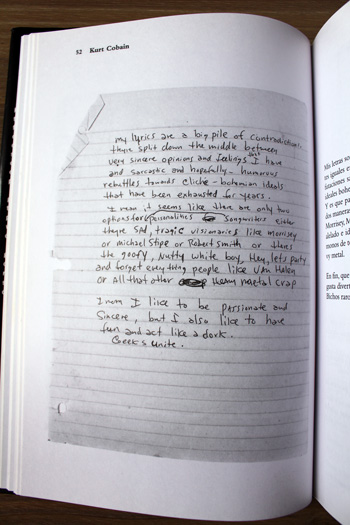 52 Kurt Cobain
my lyrics are a big pile of contradictions.
theyre split down the middle between
very sincere opinions and feelings that I have
and sarcastic and hopefully - humorous
rebuttles towards cliche - bohemian ideals
that have been exhausted for years.
I mean it seems like there are only two
options for personalities songwriters either
theyre SAD, tragic visionaries like morrisey
or michael stipe or Robert smith or theres
the goofy, Nutty white boy, Hey, lets party
and forget everything people like Van Halen
or All that other Heavy metal crap
I mean I like to be passionate and
Sincere, but I also like to have
fun and act like a dork.
Geeks unite.
Mis letras so
tan iguales e
ideales bohe
Y es que pa
dos maneras
Morrissey, M
vy metal.
En fin, que
gusta divert
Bichos raros